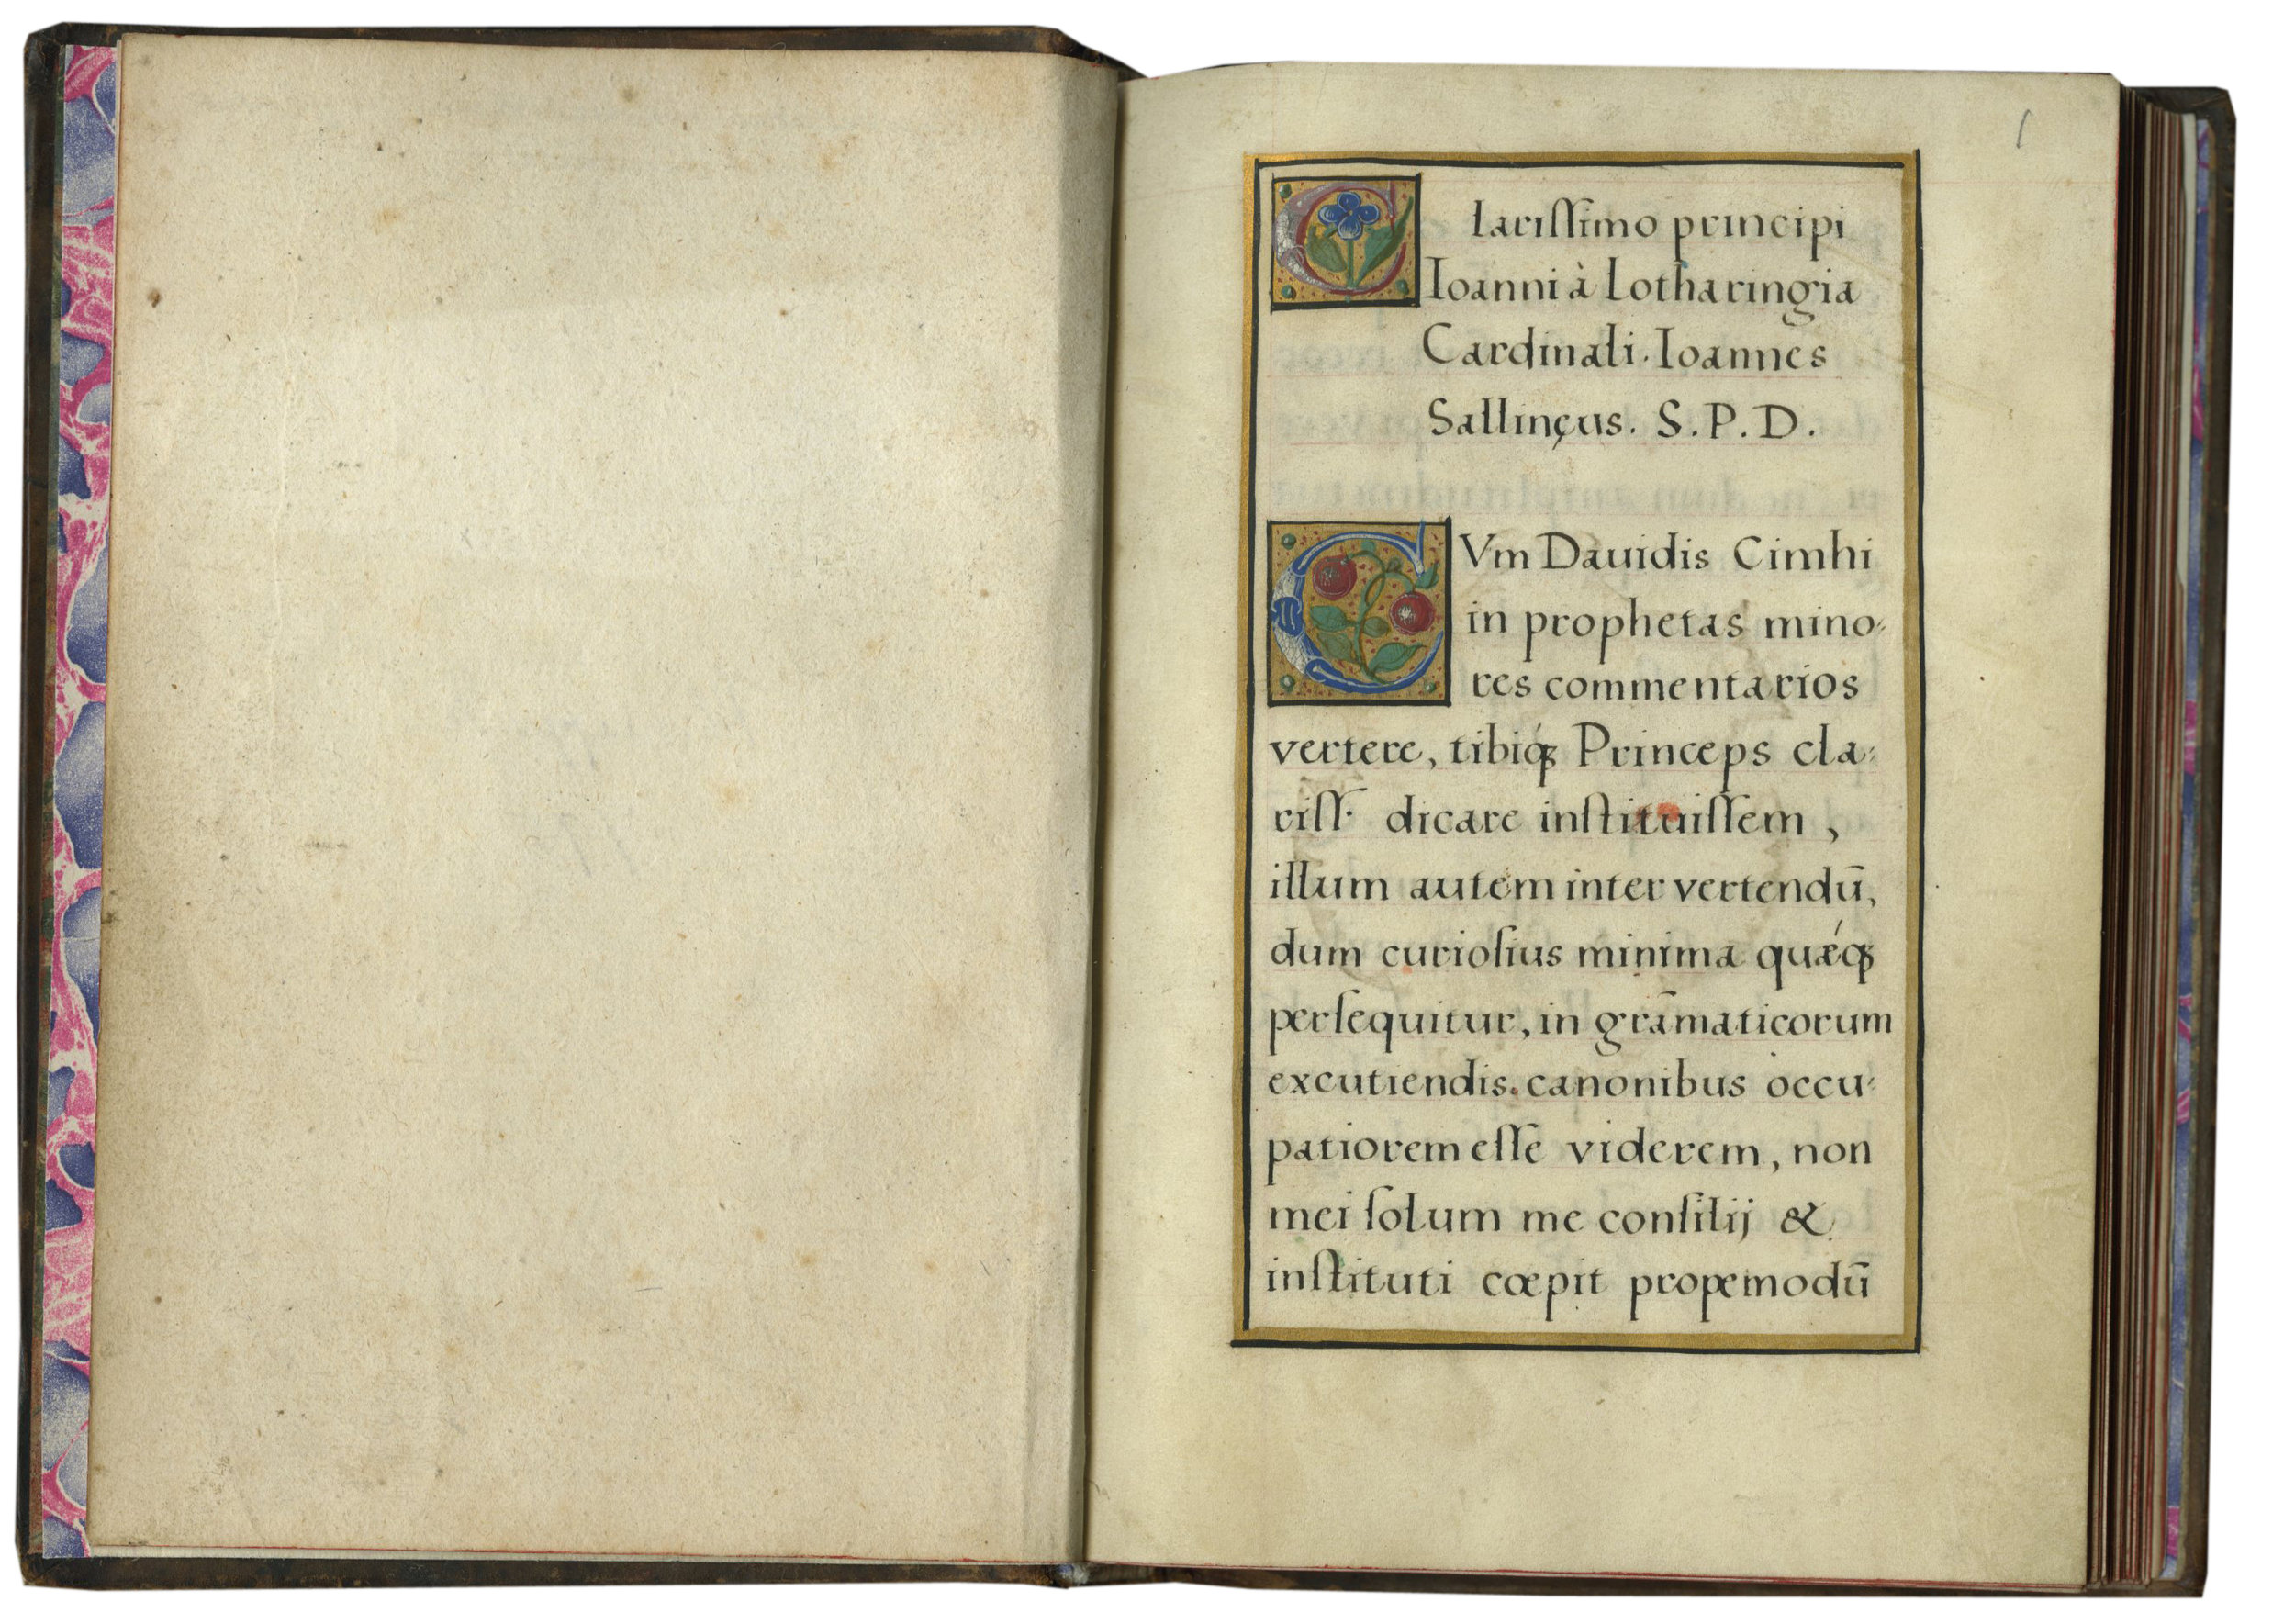 1
Clariſſimo principi
Ioanni à Lotharingia
Cardinali. Ioannes
Sallinęus. S. P. D.
CVm Dauidis Cimhi
in prophetas mino⸗
res commentarios
vertere, tibiq́ꝫ Princeps cla⸗
riſſ. dicare inſtituiſſem,
illum autem inter vertendū,
dum curioſius minima quǽqꝫ
perſequitur, in grāmaticorum
excutiendis canonibus occu⸗
patiorem eſſe viderem, non
mei ſolum me conſilij &
inſtituti cœpit propemodū